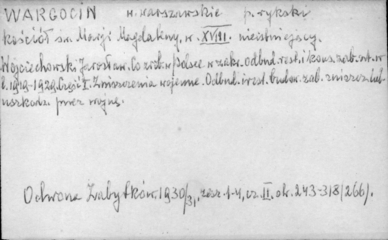 WARGOCIN w. warszawskie p. rykski
Kościół św. Marji Magdaleny, w. XVIII. nieistniejący.
Wojciechowski Jarosław. Co zrob. w Polsce w zakr. odbud. rest. i kons. zab. szt. w
l. 1919-1929. Część II. Zniszczenia wojenne. Odbud. i rest. budow. zab. zniszcz. lub
uszkodz. przez wojnę.
Ochrona Zabytków. 1930/31, zesz. 1-4, cz. II. ok. 243-318 (266).